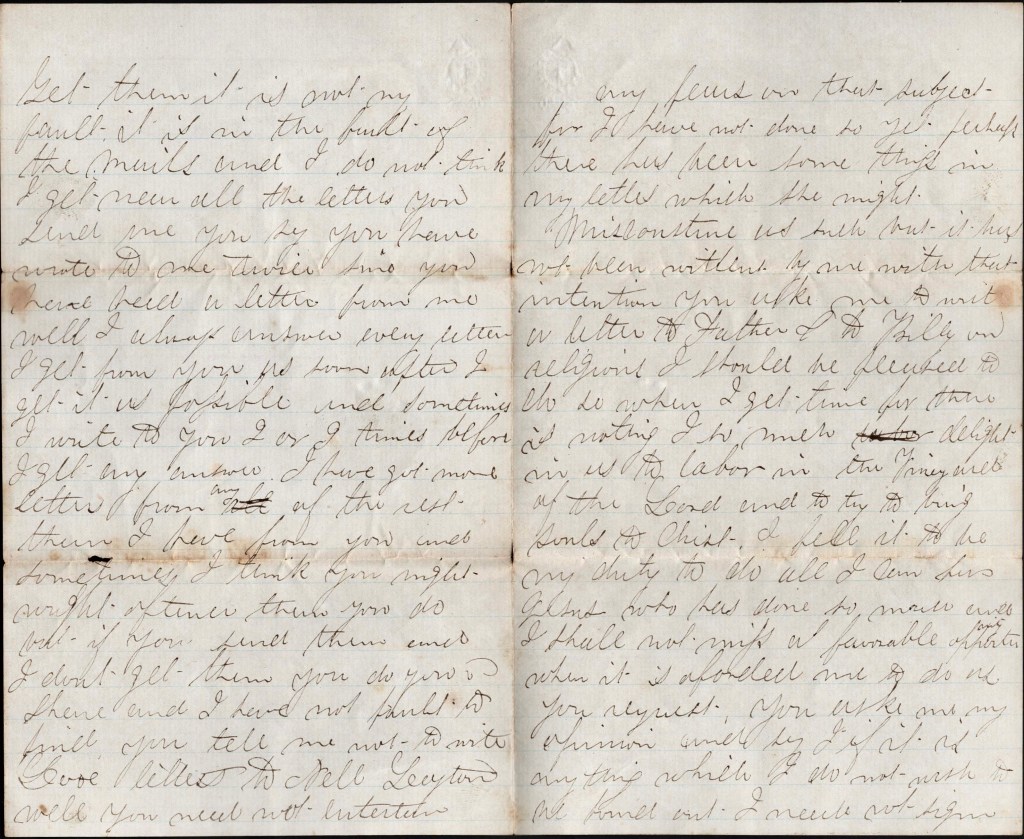 Get them it is not my
fault it is in the fault of
the Mails and I do not think
I get near all the letters you
send me you sy you have
wrote to me twice sinc you
have heed a letter from me
well I always answer every letter
I get from you as soon after I
get it as possible and sometimes
I write to you 2 or 3 times before
I get any answer. I have got more
letters from any of the rest
then I have from you and
sometimes I think you might
wright oftener then you do
but if you send them and
I dont get them you do your
Shere and I have not fault to
find you tell me not to write
Love letters to Nell Layton
well you need not entertain
any fears on that subject
for I have not done so yet perhaps
there has been some thing in
my letter which she might
Misconstrue as such but it has
not been written by me with that
intention you aske me to write
a letter to Father & to Billy on
religion I should be pleased to
do so when I get time for there
is noting I so much delight
in as to labor in the Vineyard
of the Lord and to try to bring
souls to Christ. I feel it to be
my duty to do all I can for
Jesus who has done so much and
I shall not miss a favorable opportunity
when it is aforded me to do as
you request, you aske me my
opinion and sy I if it is
anything which I do not wish to
be found out I need not sign